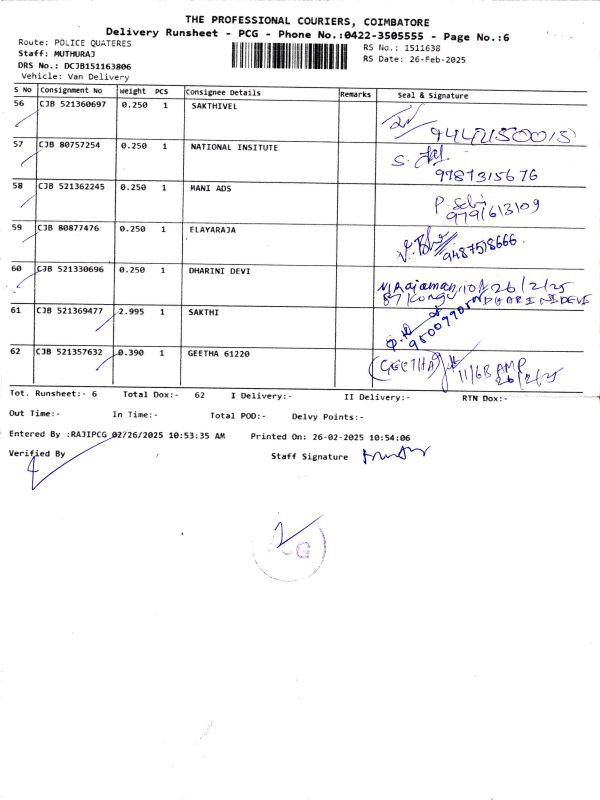 THE PROFESSIONAL COURIERS, COIMBATORE
Delivery Runsheet - PCG - Phone No.:0422-3505555 - Page No.:6
Route: POLICE QUATERES
RS No.: 1511638
Staff: MUTHURAJ
RS Date: 26-Feb-2025
DRS No.: DCJB151163806
Vehicle: Van Delivery
S No Consignment No Weight PCS Consignee Details Remarks Seal & Signature
56 CJB 521360697 0.250 1 SAKTHIVEL
9442150015
57 CJB 80757254 0.250 1 NATIONAL INSITUTE
9787315676
58 CJB 521362245 0.250 1 MANI ADS
9791613109
59 CJB 80877476 0.250 1 ELAYARAJA
9487518666
60 CJB 521330696 0.250 1 DHARINI DEVI
26/2/25
DHARINIDEVI
61 CJB 521369477 2.995 1 SAKTHI
62 CJB 521357632 0.390 1 GEETHA 61220
(GEETHA)
26/2/25
Tot. Runsheet:- 6 Total Dox:- 62 I Delivery:- II Delivery:- RTN Dox:-
Out Time:- In Time:- Total POD:- Delvy Points:-
Entered By :RAJIPCG 02/26/2025 10:53:35 AM Printed On: 26-02-2025 10:54:06
Verified By Staff Signature